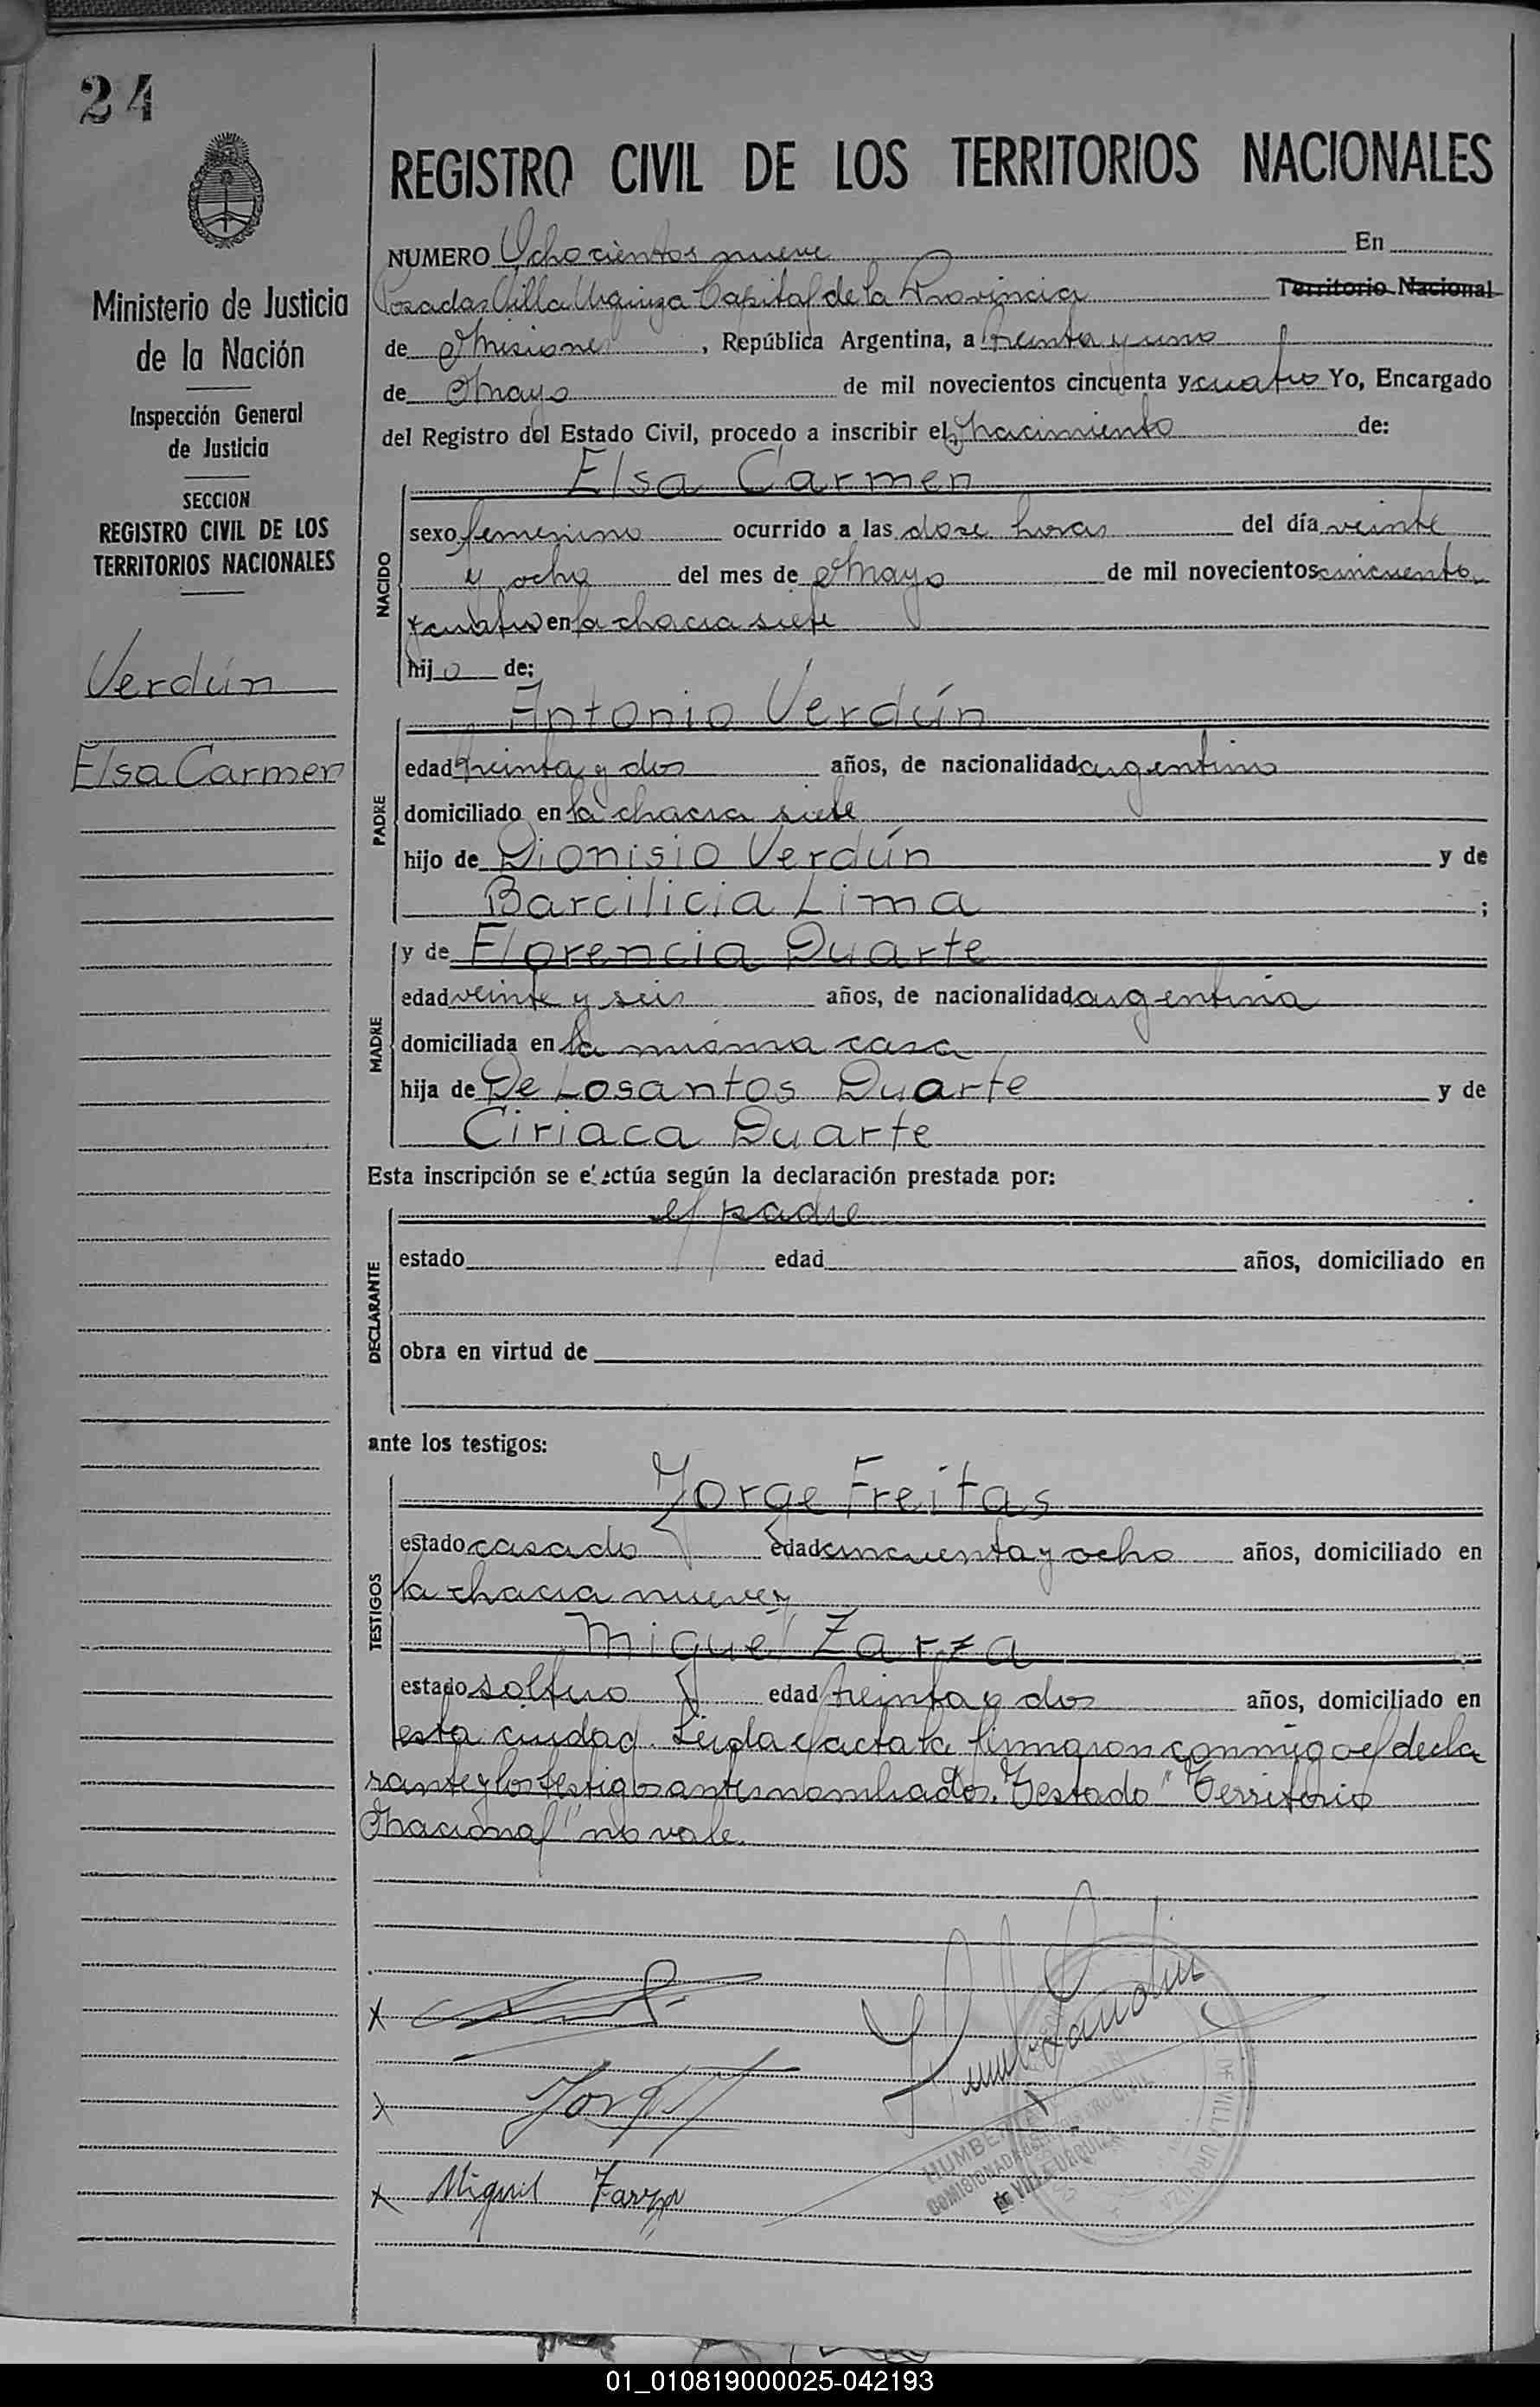 24
Ministerio de Justicia
de la Nación
Inspección General
de Justicia
SECCION
REGISTRO CIVIL DE LOS
TERRITORIOS NACIONALES
Verdún
Elsa Carmen
REGISTRO CIVIL DE LOS TERRITORIOS NACIONALES
NUMERO Ochocientos nueve En
Posadas Villa Urquiza Capital de la Provincia Territorio Nacional
de Misiones, República Argentina, a treinta y uno
de Mayo de mil novecientos cincuenta y cuatro Yo, Encargado
del Registro del Estado Civil, procedo a inscribir el Nacimiento de:
Elsa Carmen
NACIDO
sexo femenino ocurrido a las doce horas del día veinte
y ocho del mes de Mayo de mil novecientos cincuenta
y cuatro en la chacra siete
hija de:
Antonio Verdún
PADRE
edad treinta y dos años, de nacionalidad argentino
domiciliado en la chacra siete
hijo de Dionisio Verdún y de
Barcilicia Lima ;
y de Florencia Duarte
MADRE
edad veinte y seis años, de nacionalidad argentina
domiciliada en la misma casa
hija de De Losantos Duarte y de
Ciriaca Duarte
Esta inscripción se efectúa según la declaración prestada por:
el padre
DECLARANTE
estado edad años, domiciliado en
obra en virtud de
ante los testigos:
Jorge Freitas
TESTIGOS
estado casado edad cincuenta y ocho años, domiciliado en
la chacra nueve y
Miguel Zarza
estado soltero edad treinta y dos años, domiciliado en
esta ciudad. Leida el acta la firmaron conmigo el decla
rante y los testigos antes nombrados. Testado "Territorio
Nacional" no vale.
Miguel Zarza
DE VILLA URQUIZA
01_010819000025-042193